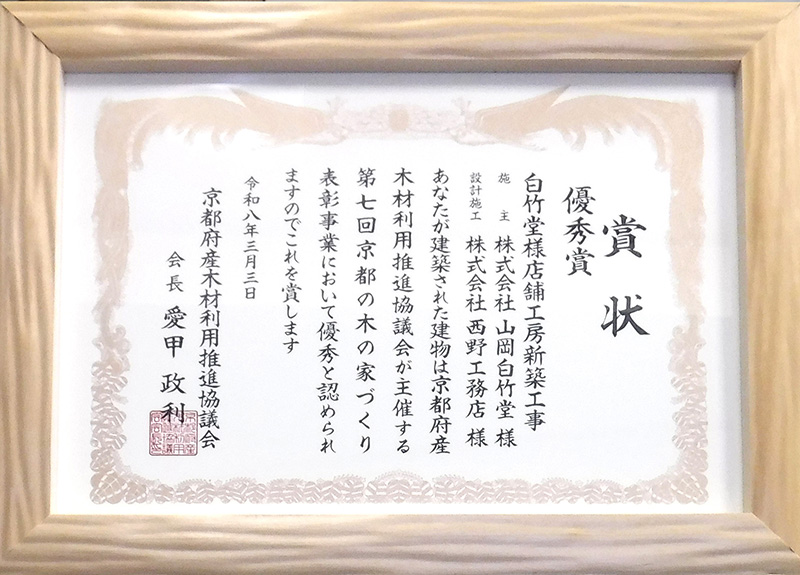 賞状
優秀賞
白竹堂様店舗工房新築工事
施主 株式会社 山岡白竹堂 様
設計施工 株式会社 西野工務店 様
あなたが建築された建物は京都府産
木材利用推進協議会が主催する
第七回京都の木の家づくり
表彰事業において優秀と認められ
ますのでこれを賞します
令和八年三月三日
京都府産木材利用推進協議会
会長 愛甲 政利